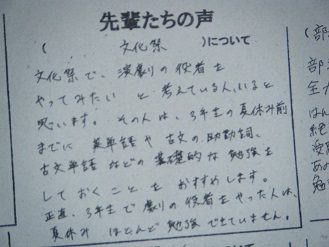 先輩たちの声
( 文化祭 )について
文化祭で、演劇の役者を
やってみたい と考えている人、いると
思います。その人は、3年生の夏休み前
までに 英単語や 古文の助動詞、
古文単語 などの 基礎的な 勉強を
しておくことを おすすめします。
正直、3年生で 劇の 役者を やった人は、
夏休み ほとんど 勉強 できていません。
(部
部
全力